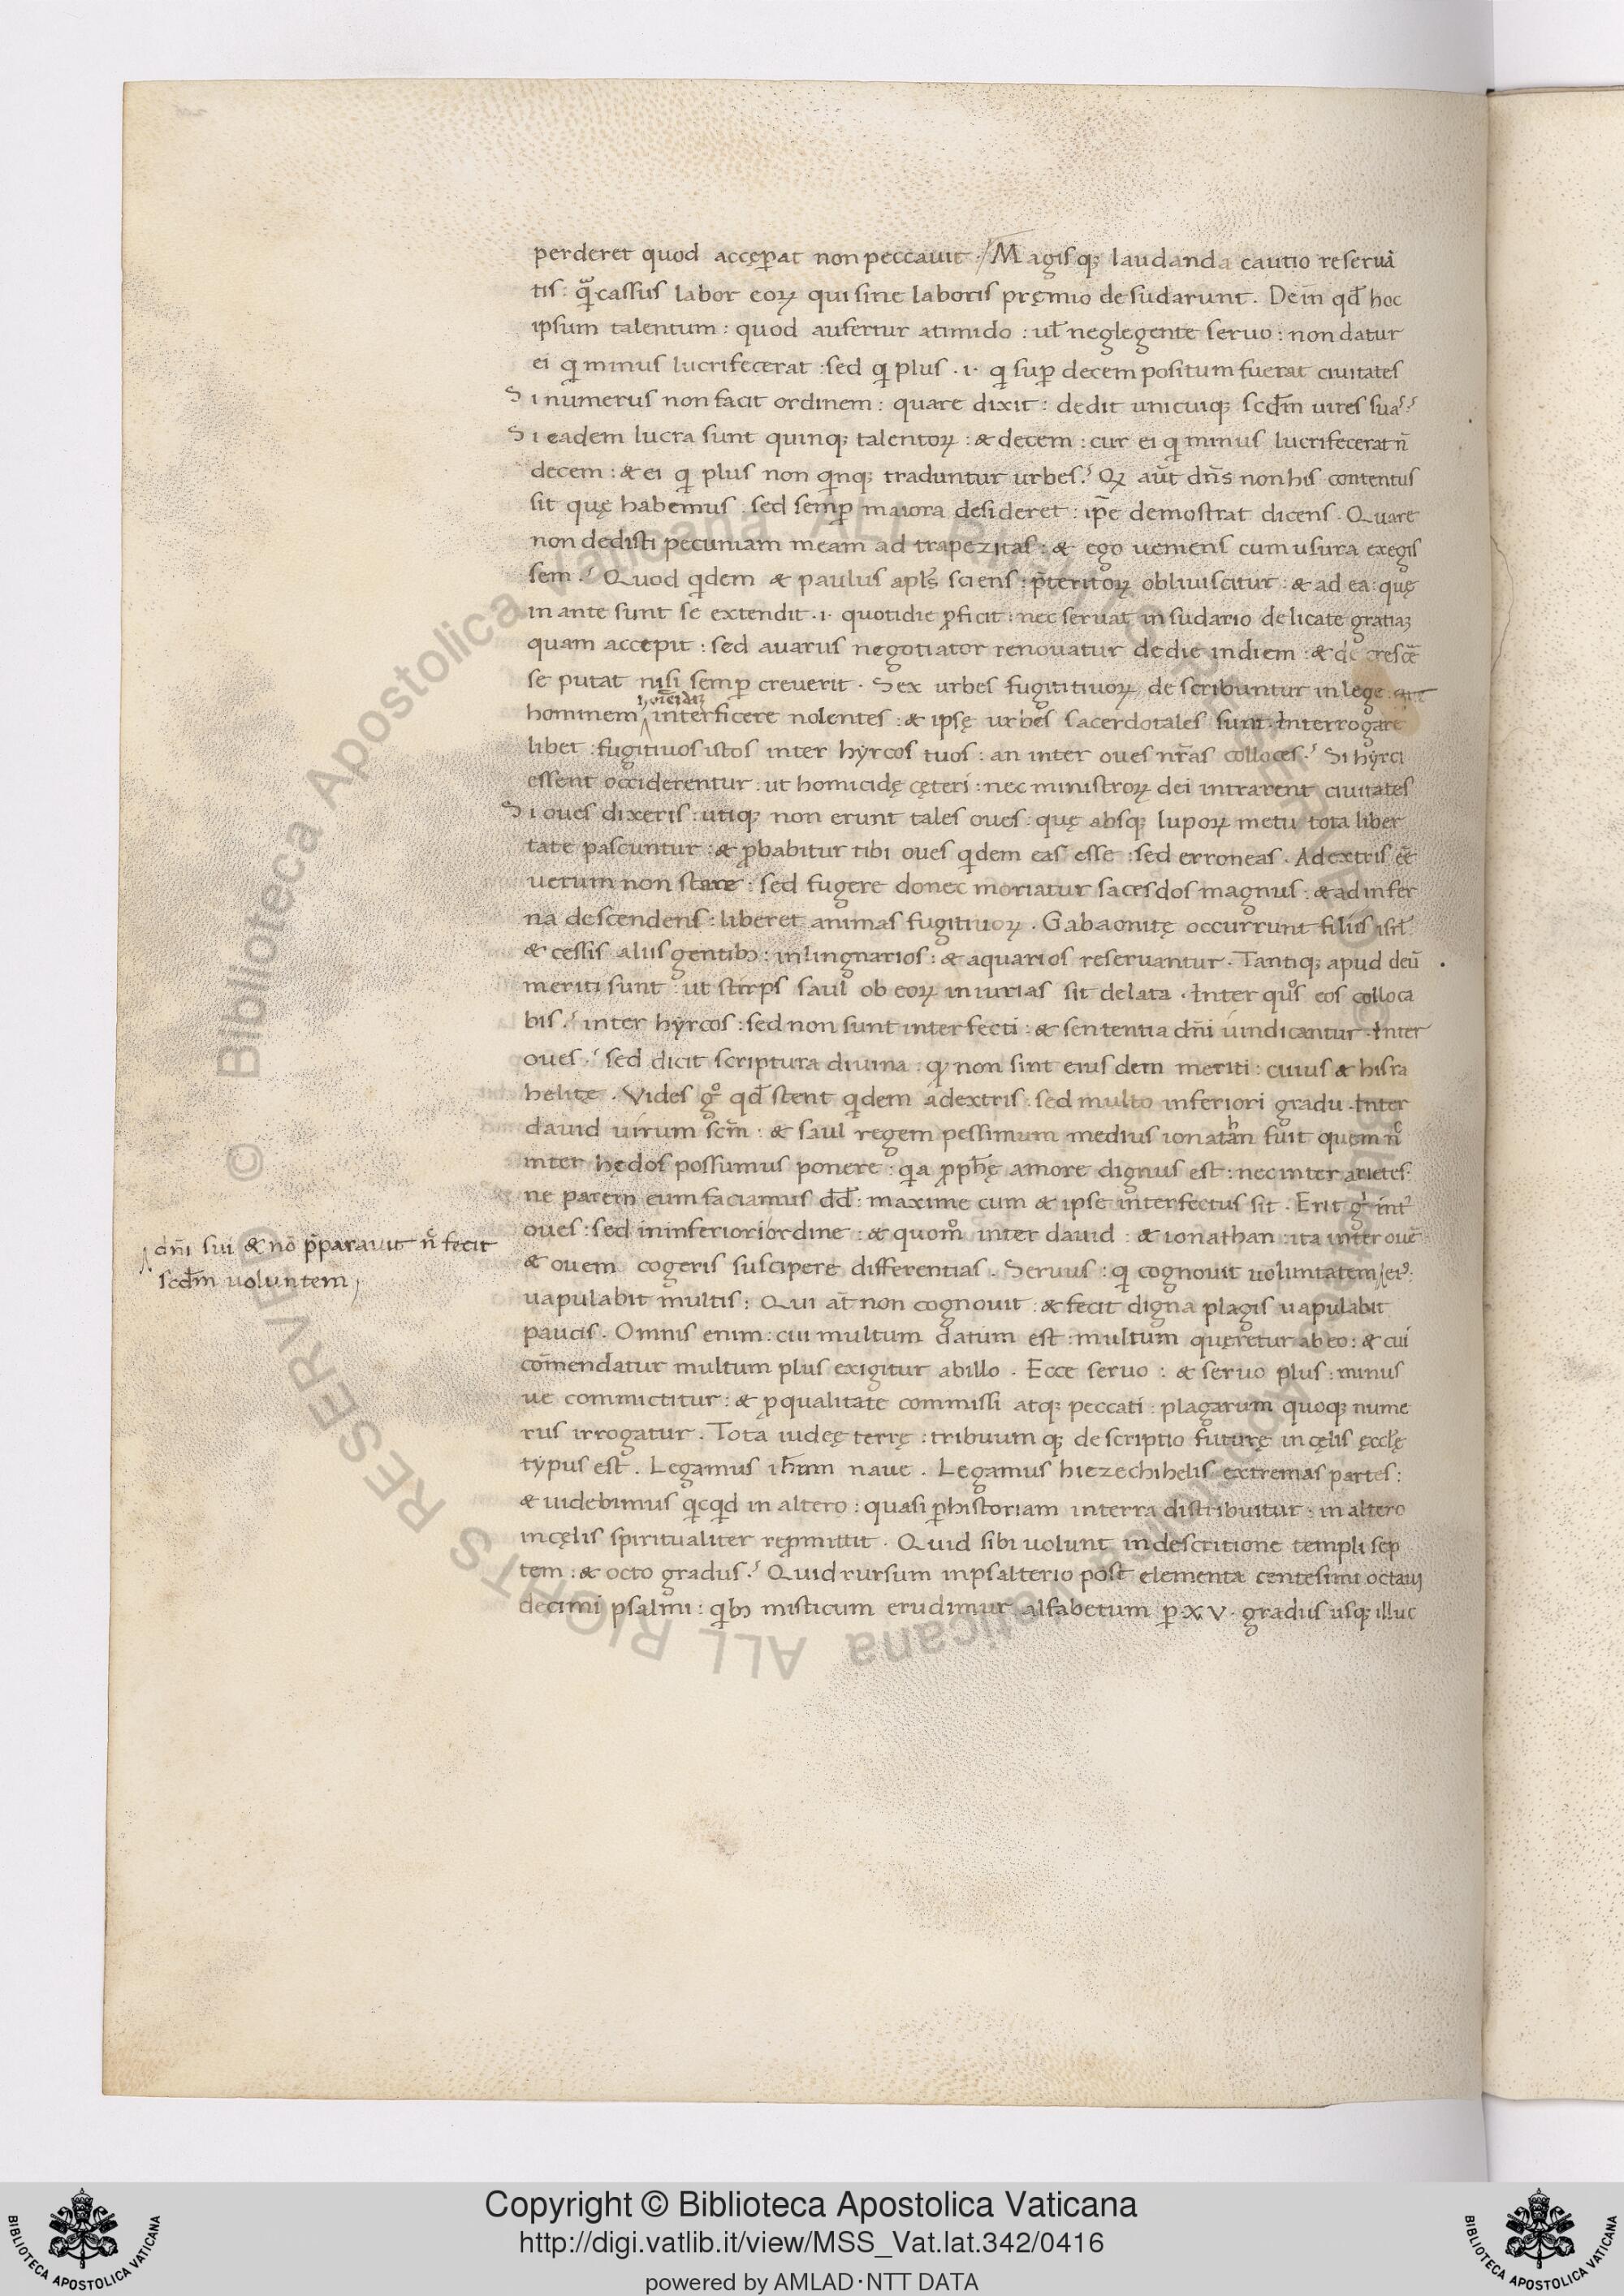 perderet quod accęꝑat non peccauit · Magisq; laudanda cautio reseruā
tis : qͣ̄ cassus labor eoꝝ qui sine laboris pręmio desudarunt . Dein qđ hoc
ipsum talentum : quod aufertur atimido : uł neglegente seruo : non datur
ei qͥ minus lucrifecerat : sed qͥ plus · i · qͥ suꝑ decem positum fuerat ciuitates
Si numerus non facit ordinem : quare dixit : dedit unicuiq; scd̄m uires suas?
Si eadem lucra sunt quinq; talentoꝝ : & decem : cur ei qͥ minus lucrifecerat n̄
decem : & ei qͥ plus non qͥnq; traduntur urbes? Qꝫ aūt dn̄s non his contentus
sit quę habemus . sed semꝑ maiora desideret : ip̄e demostrat dicens . Quare
non dedisti pecuniam meam ad trapezitas : & ego ueniens cum usura exegis
sem? Quod qͥdem & paulus apls̄ sciens : p̄teritoꝝ obliuiscitur : & ad ea : quę
in ante sunt se extendit · i · quotidie ꝓficit : nec seruat in sudario delicate gratiaꝫ
quam accepit : sed auarus negotiator renouatur de die in diem : & decrescē
se putat nisi semꝑ creuerit . Sex urbes fugititiuoꝝ describuntur in lege . qui
homicidiꝫ
hominem interficere nolentes : & ipsę urbes sacerdotales sunt . Interrogare
libet : fugitiuos istos inter hyrcos tuos : an inter oues nr̄as colloces? Si hyrci
essent occiderentur : ut homicidę cęteri : nec ministroꝝ dei intrarent ciuitates
Si oues dixeris : utiq; non erunt tales oues : quę absq; lupoꝝ metu tota liber
tate pascuntur : & ꝓbabitur tibi oues qͥdem eas esse : sed erroneas . Adextris eē
uerum non stare : sed fugere donec moriatur sacesdos magnus : & ad infer
na descendens : liberet animas fugitiuoꝝ . Gabaonitę occurrunt filiis isrł
& cessis aliis gentibꝫ : in lingnarios : & aquarios reseruantur . Tantiq; apud deū
meriti sunt : ut stirps saul ob eoꝝ iniurias sit delata . Inter qͦs eos colloca
bis? inter hyrcos : sed non sunt interfecti : & sententia dn̄i uindicantur . Inter
oues? sed dicit scriptura diuina : qꝫ non sint eiusdem meriti : cuius & hisra
helitę . Vides gͦ qđ stent qͥdem adextris : sed multo inferiori gradu . Inter
dauid uirum scm̄ : & saul regem pessimum medius ionathan fuit quem n̄
inter hędos possumus ponere : qͥa ꝓphę amore dignus est : nec inter arietes
ne parem eum faciamus dd̄ : maxime cum & ipse interfectus sit . Erit gͦ int̉
oues : sed in inferiori ordine : & quomͦ inter dauid : & ionathan : ita inter ouē
& ouem cogeris suscipere differentias . Seruus : qͥ cognouit uoluntatem / ei᷒ :
dn̄i sui & nō p̄parauit n̄ fecit
scd̄m uoluntem
uapulabit multis : Qui at̄ non cognouit : & fecit digna plagis uapulabit
paucis . Omnis enim : cui multum datum est : multum quęretur ab eo : & cui
com̄endatur multum plus exigitur abillo . Ecce seruo : & seruo plus : minus
ue commictitur : & ꝓ qualitate commissi atq; peccati : plagarum quoq; nume
rus irrogatur . Tota iudeę terrę : tribuumq; descriptio futurę in cęlis ęccłę
typus est . Legamus ih̄um naue . Legamus hiezechihelis extremas partes :
& uidebimus qͥcqͥd in altero : quasi ꝑ historiam in terra distribuitur : in altero
in cęlis spiritualiter reꝓmittit . Quid sibi uolunt in descritione templi sep
tem : & octo gradus? Quid rursum in psalterio post elementa centesimi octaui
decimi psalmi : qͥbꝫ misticum erudimur alfabetum ꝑ · XV · gradus usq; illuc
Copyright © Biblioteca Apostolica Vaticana
http://digi.vatlib.it/view/MSS_Vat.lat.342/0416
powered by AMLAD·NTT DATA
BIBLIOTECA APOSTOLICA VATICANA
BIBLIOTECA APOSTOLICA VATICANA
© Biblioteca Apostolica Vaticana ALL RIGHTS RESERVED
© Biblioteca Apostolica Vaticana ALL RIGHTS RESERVED